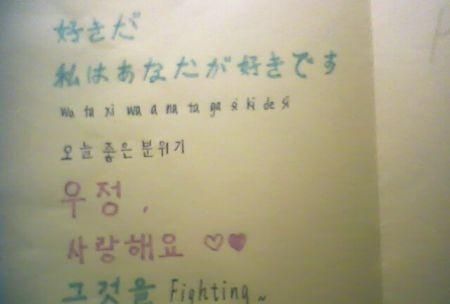 好きだ
私はあなたが好きです
Wa ta xi wa a na ta ga si ki de si
오늘 좋은 분위기
우정,
사랑해요 ♡♥
그것을 Fighting~